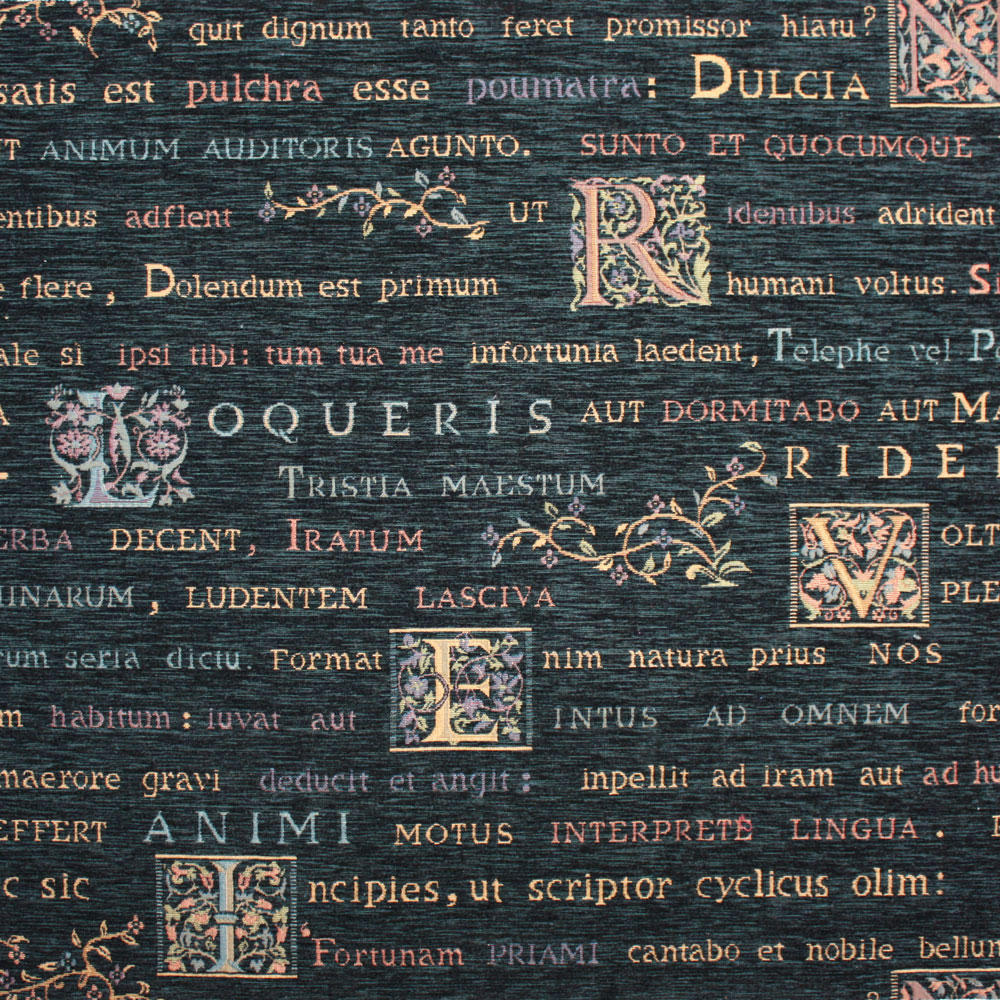 quit dignum tanto feret promissor hiatu? N
satis est pulchra esse poumatra: DULCIA
ET ANIMUM AUDITORIS AGUNTO. SUNTO ET QUOCUMQUE
entibus adflent UT Ridentibus adrident
e flere, Dolendum est primum humani voltus. SI
ale si ipsi tibi: tum tua me infortunia laedent, Telephe vel Pe
A LOQUERIS AUT DORMITABO AUT MA
. TRISTIA MAESTUM RIDE
ERBA DECENT, IRATUM VOLT
INARUM, LUDENTEM LASCIVA PLE
rum seria dictu. Format Enim natura prius NÒS
m habitum: iuvat aut INTUS AD OMNEM for
maerore gravi deducit et angit: inpellit ad iram aut ad hu
EFFERT ANIMI MOTUS INTERPRETE LINGUA.
c sic Incipies, ut scriptor cyclicus olim:
'Fortunam PRIAMI cantabo et nobile bellum